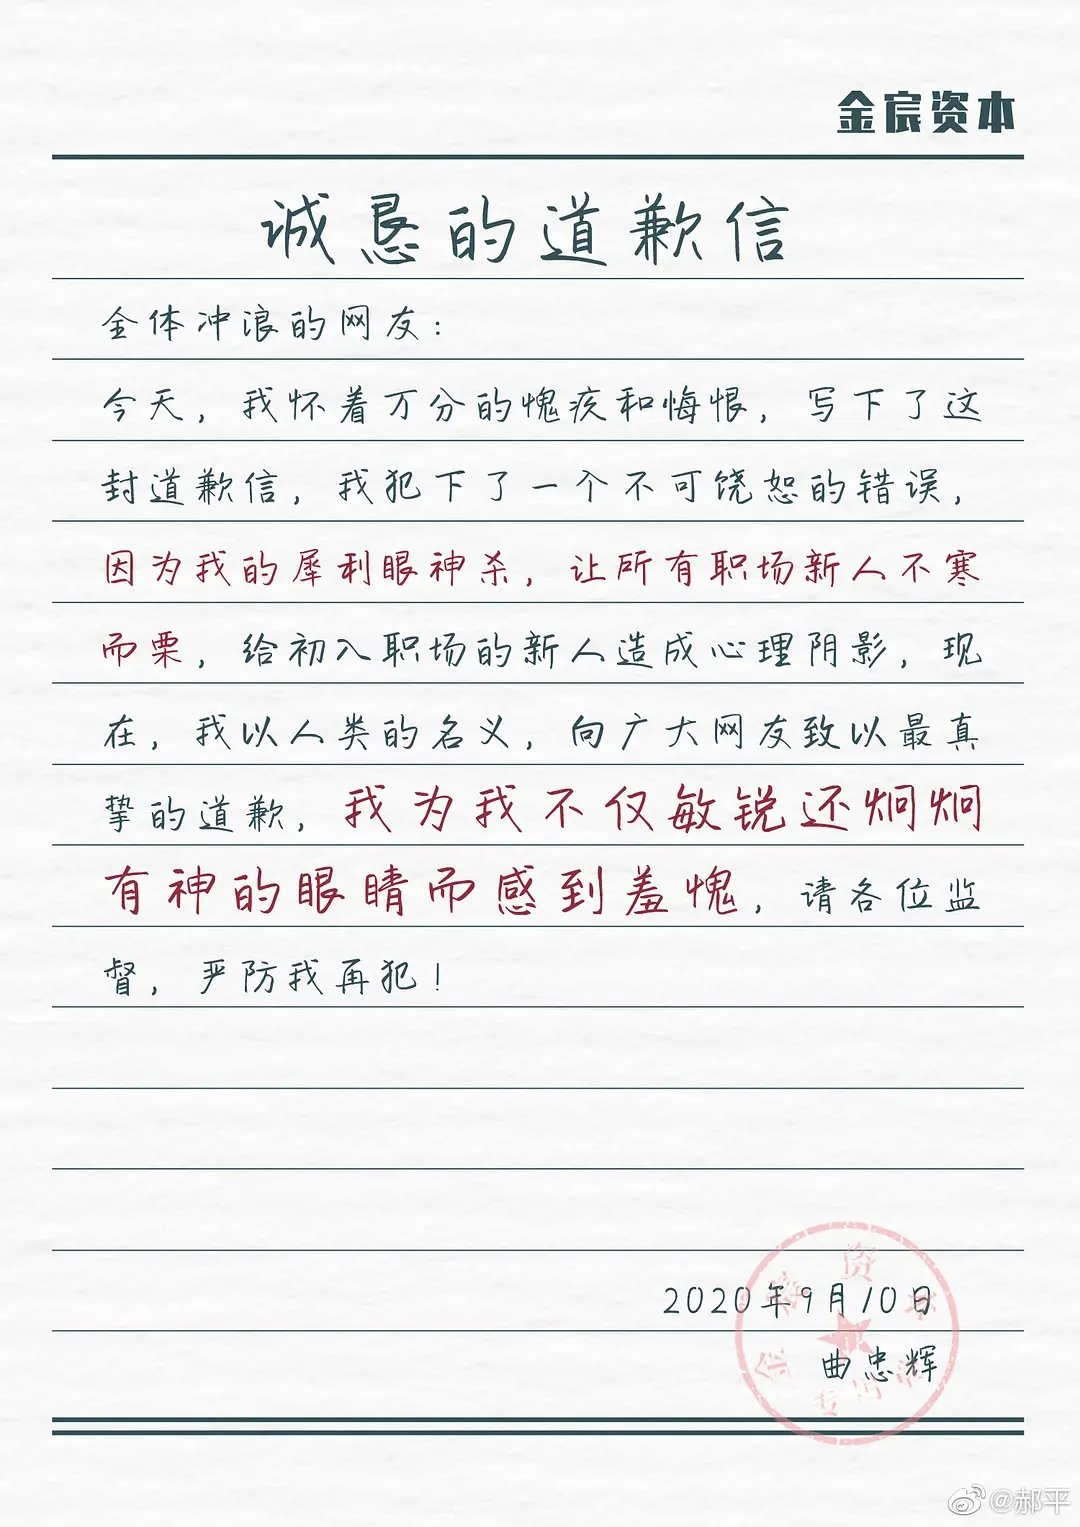 金宸资本
诚恳的道歉信
全体冲浪的网友：
今天，我怀着万分的愧疚和悔恨，写下了这
封道歉信，我犯下了一个不可饶恕的错误，
因为我的犀利眼神杀，让所有职场新人不寒
而栗，给初入职场的新人造成心理阴影，现
在，我以人类的名义，向广大网友致以最真
挚的道歉，我为我不仅敏锐还炯炯
有神的眼睛而感到羞愧，请各位监
督，严防我再犯！
2020年9月10日
曲忠辉
@郝平